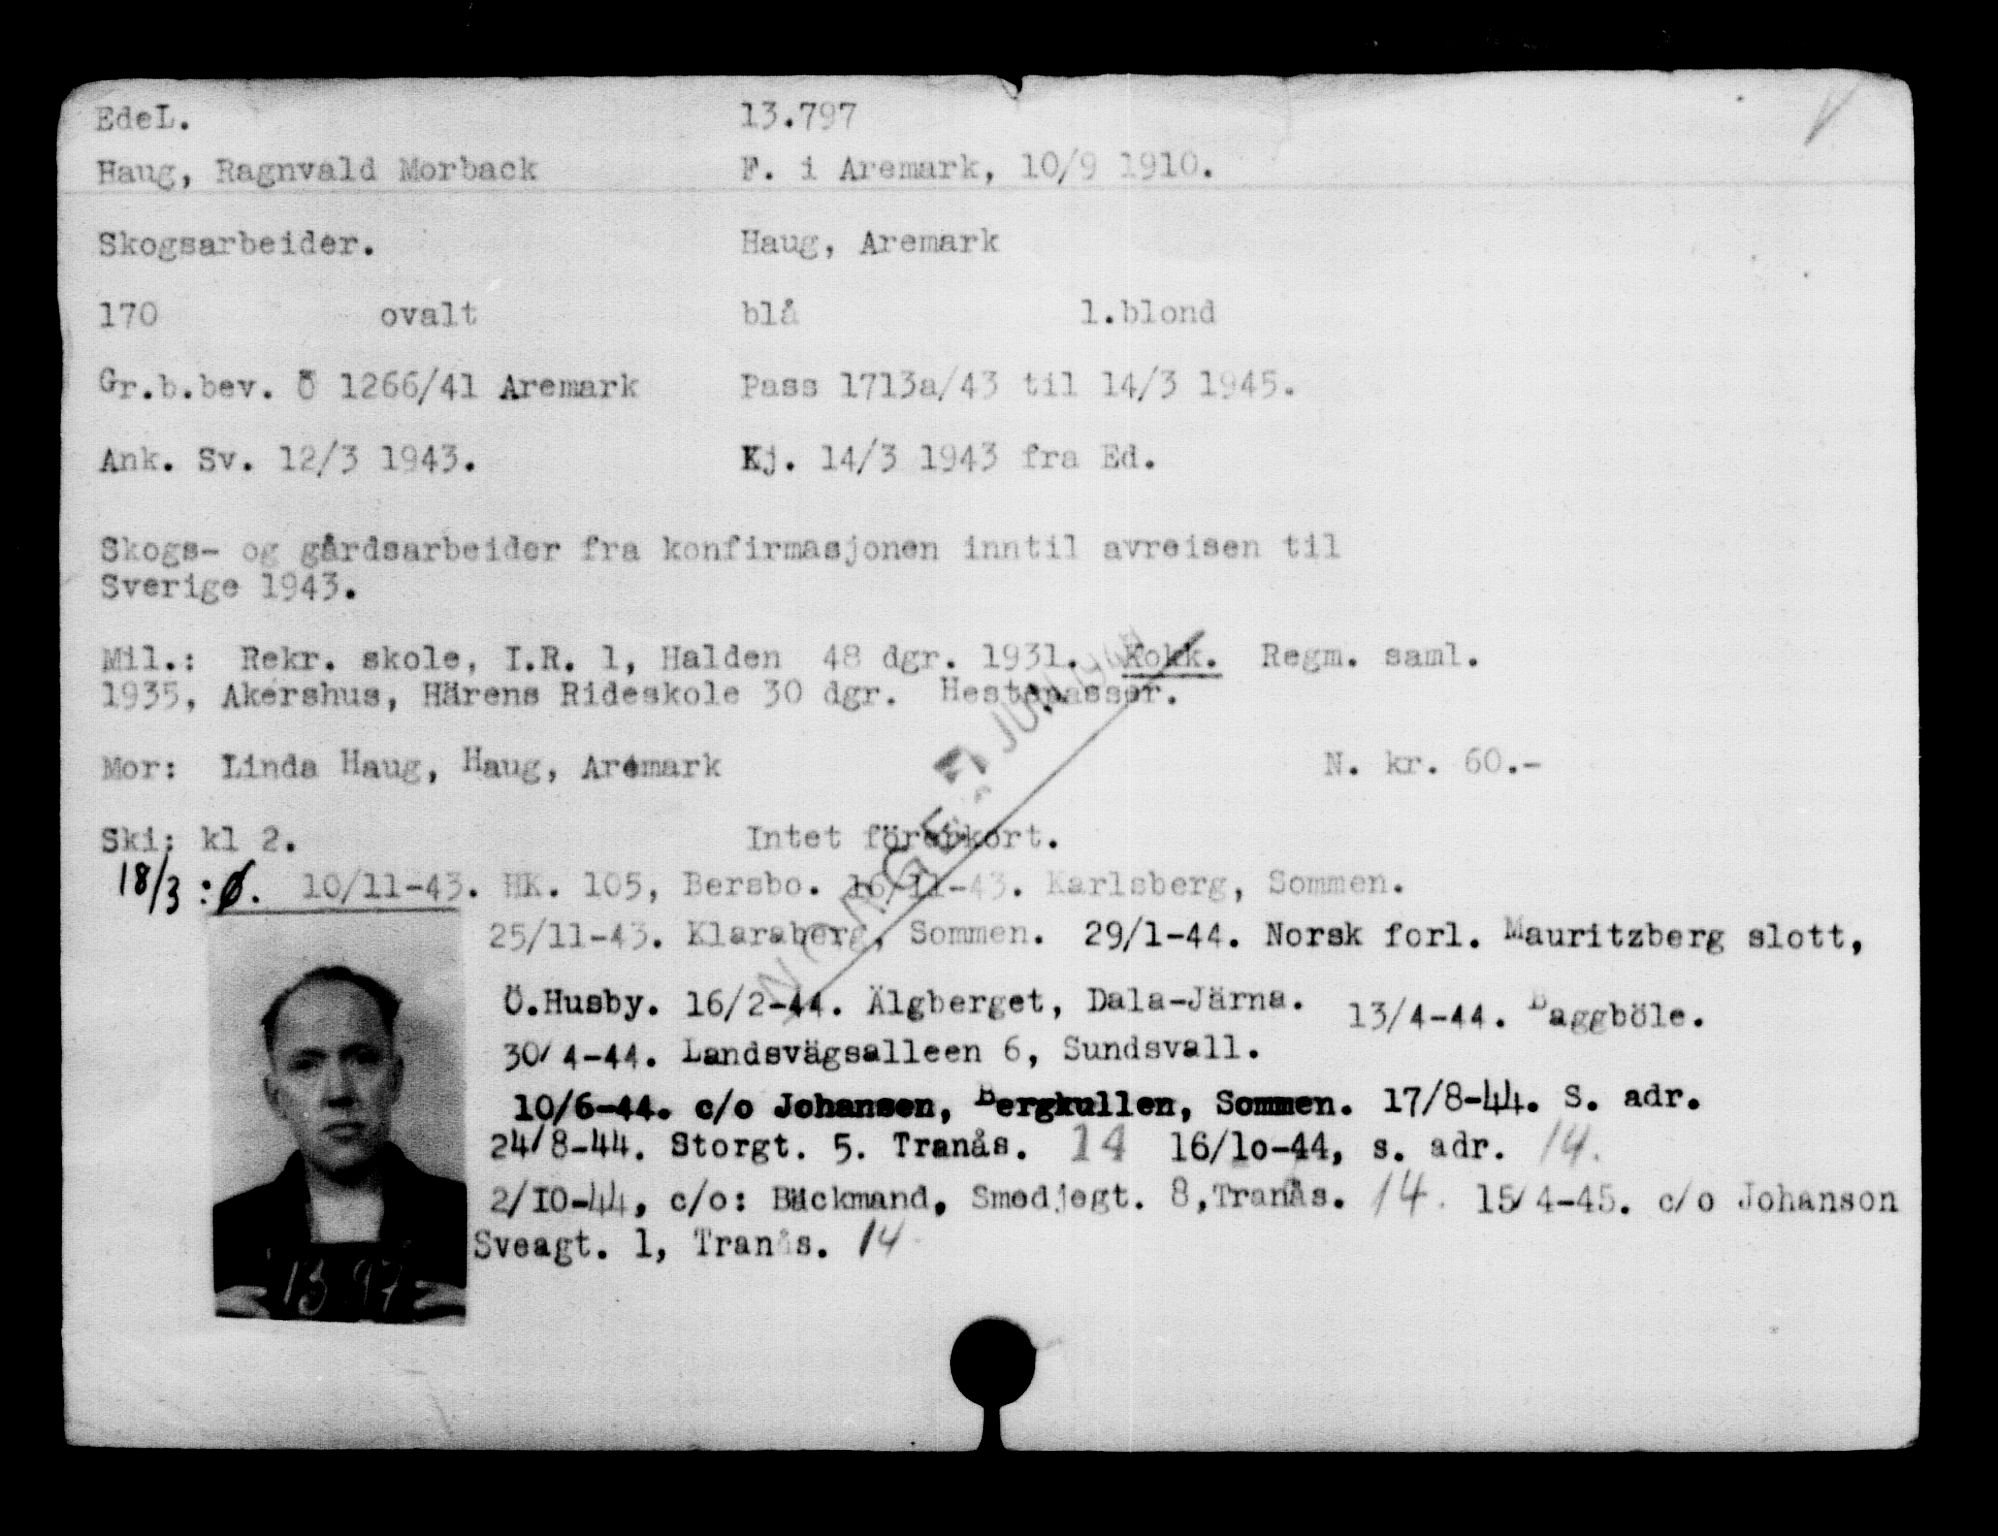 EdeL. 13.797
Haug, Ragnvald Morback F. i Aremark, 10/9 1910.
Skogsarbeider. Haug, Aremark
170 ovalt blå l.blond
Gr.b.bev. Ö 1266/41 Aremark Pass 1713a/43 til 14/3 1945.
Ank. Sv. 12/3 1943. Kj. 14/3 1943 fra Ed.
Skogs- og gårdsarbeider fra konfirmasjonen inntil avreisen til
Sverige 1943.
Mil.: Rekr. skole, I.R. 1, Halden 48 dgr. 1931. Kokk. Regm. saml.
1935, Akershus, Härens Rideskole 30 dgr. Hestepasser.
Mor: Linda Haug, Haug, Aremark N. kr. 60.-
Ski: kl 2. Intet förerkort.
18/3 : Ø. 10/11-43. HK. 105, Bersbo. 16/11-43. Karlsberg, Sommen.
25/11-43. Klaraberg, Sommen. 29/1-44. Norsk forl. Mauritzberg slott,
Ö.Husby. 16/2-44. Älgberget, Dala-Järna. 13/4-44. Baggböle.
30/4-44. Landsvägsalleen 6, Sundsvall.
10/6-44. c/o Johansen, Bergkullen, Sommen. 17/8-44. S. adr.
24/8-44. Storgt. 5. Tranås. 14 16/10-44, s. adr. 14.
2/10-44, c/o: Bäckmand, Smedjegt. 8, Tranås. 14. 15/4-45. c/o Johanson
Sveagt. 1, Tranås. 14
NORGE JUNI